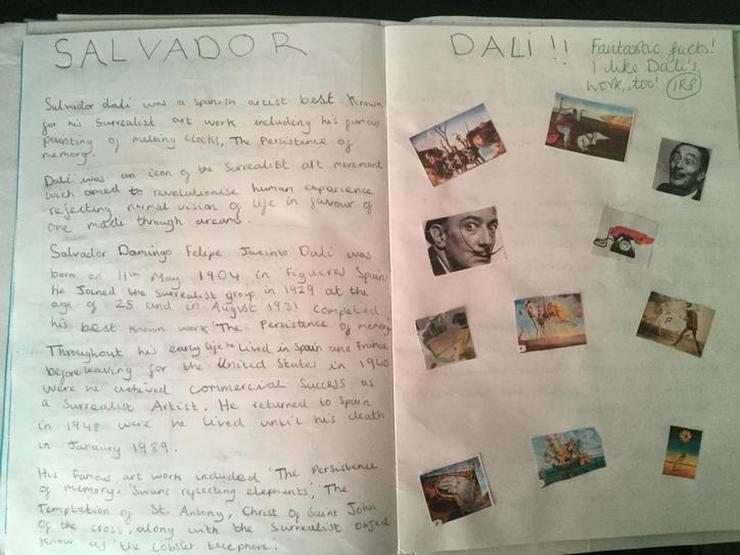 SALVADOR
Salvador dali was a spanish artist best known
for his Surrealist art work including his famous
painting of melting clocks, The Persistence of
memory.
Dali was an icon of the Surrealist art movement
wich aimed to revolutionise human experience
rejecting normal vision of life in favour of
one made through dreams.
Salvador Domingo Felipe Jacinto Dalí was
born on 11th May 1904 in Figueres Spain
He Joined the surrealist group in 1929 at the
age of 25 and in August 1931 completed
his best known work 'The Persistence of memory
Throughout his early life he Lived in Spain and France
before leaving for the United States in 1940
were he achived commercial Success as
a Surrealist Artist. He returned to Spain
in 1948 were he lived until his death
in Janaury 1989.
His famous art work included 'The Persistence
of memory, 'Swans reflecting elephants,' The
Temptation of St. Antony, Christ Of Saint John
Of the cross, along with the surrealist object
Known as 'the Lobster telephone.
DALI!!
Fantastic facts!
I like Dali's
work, too! IRS